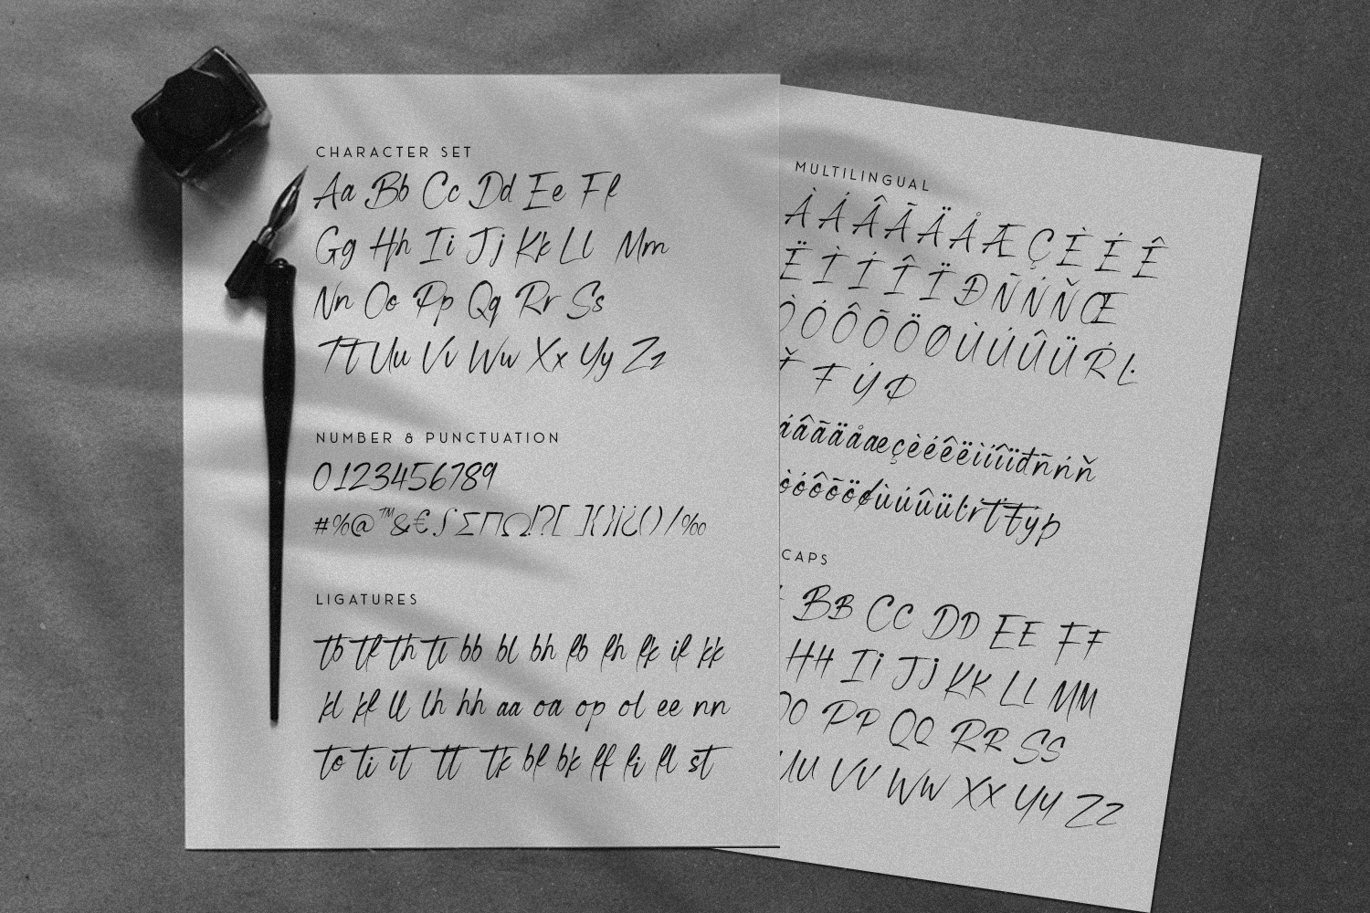 CHARACTER SET
Aa Bb Cc Dd Ee Ff
Gg Hh Ii Jj Kk Ll Mm
Nn Oo Pp Qq Rr Ss
Tt Uu Vv Ww Xx Yy Zz
NUMBER & PUNCTUATION
0123456789
#%@™&€∫∑∏Ω!?[ ]{}¡¿()/‰
LIGATURES
tb tf th tl bb bl bh fb fh fk if kk
kl kf ll lh hh aa oa op ol ee nn
to ti it tt tk bf bk ff fi fl st
MULTILINGUAL
ÀÁÂÃÄÅÆÇÈÉÊ
ËÌÍÎÏÐÑŃŇŒ
ÒÓÔÕÖØÙÚÛÜŔĿ
Ŧ Ý Þ
áâãäåæçèéêëìíîïđñńň
òóôõöøùúûüŀŕťŧýþ
CAPS
BB CC DD EE FF
HH Ii JJ KK LL MM
OO PP QQ RR SS
UU VV WW XX YY ZZ